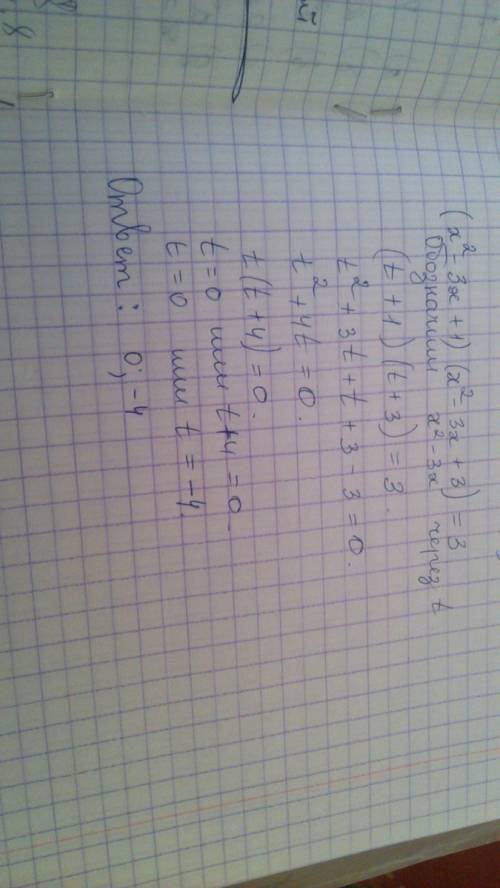 (x² - 3x + 1) (x² - 3x + 3) = 3
Обозначим x² - 3x через t
(t + 1) (t + 3) = 3.
t² + 3t + t + 3 - 3 = 0.
t² + 4t = 0.
t (t + 4) = 0.
t = 0 или t + 4 = 0.
t = 0 или t = -4.
Ответ: 0; -4